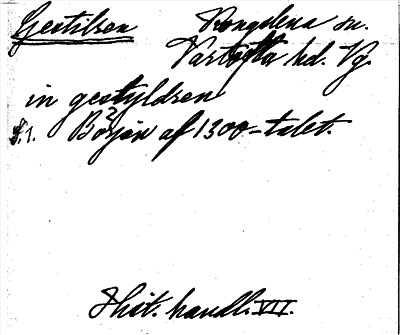 Gestilren Kongslena sn.
Vartofta hd. Vg.
in gestyldren
S. 1. Början af 1300-talet.
2
Hist. handl. VII.